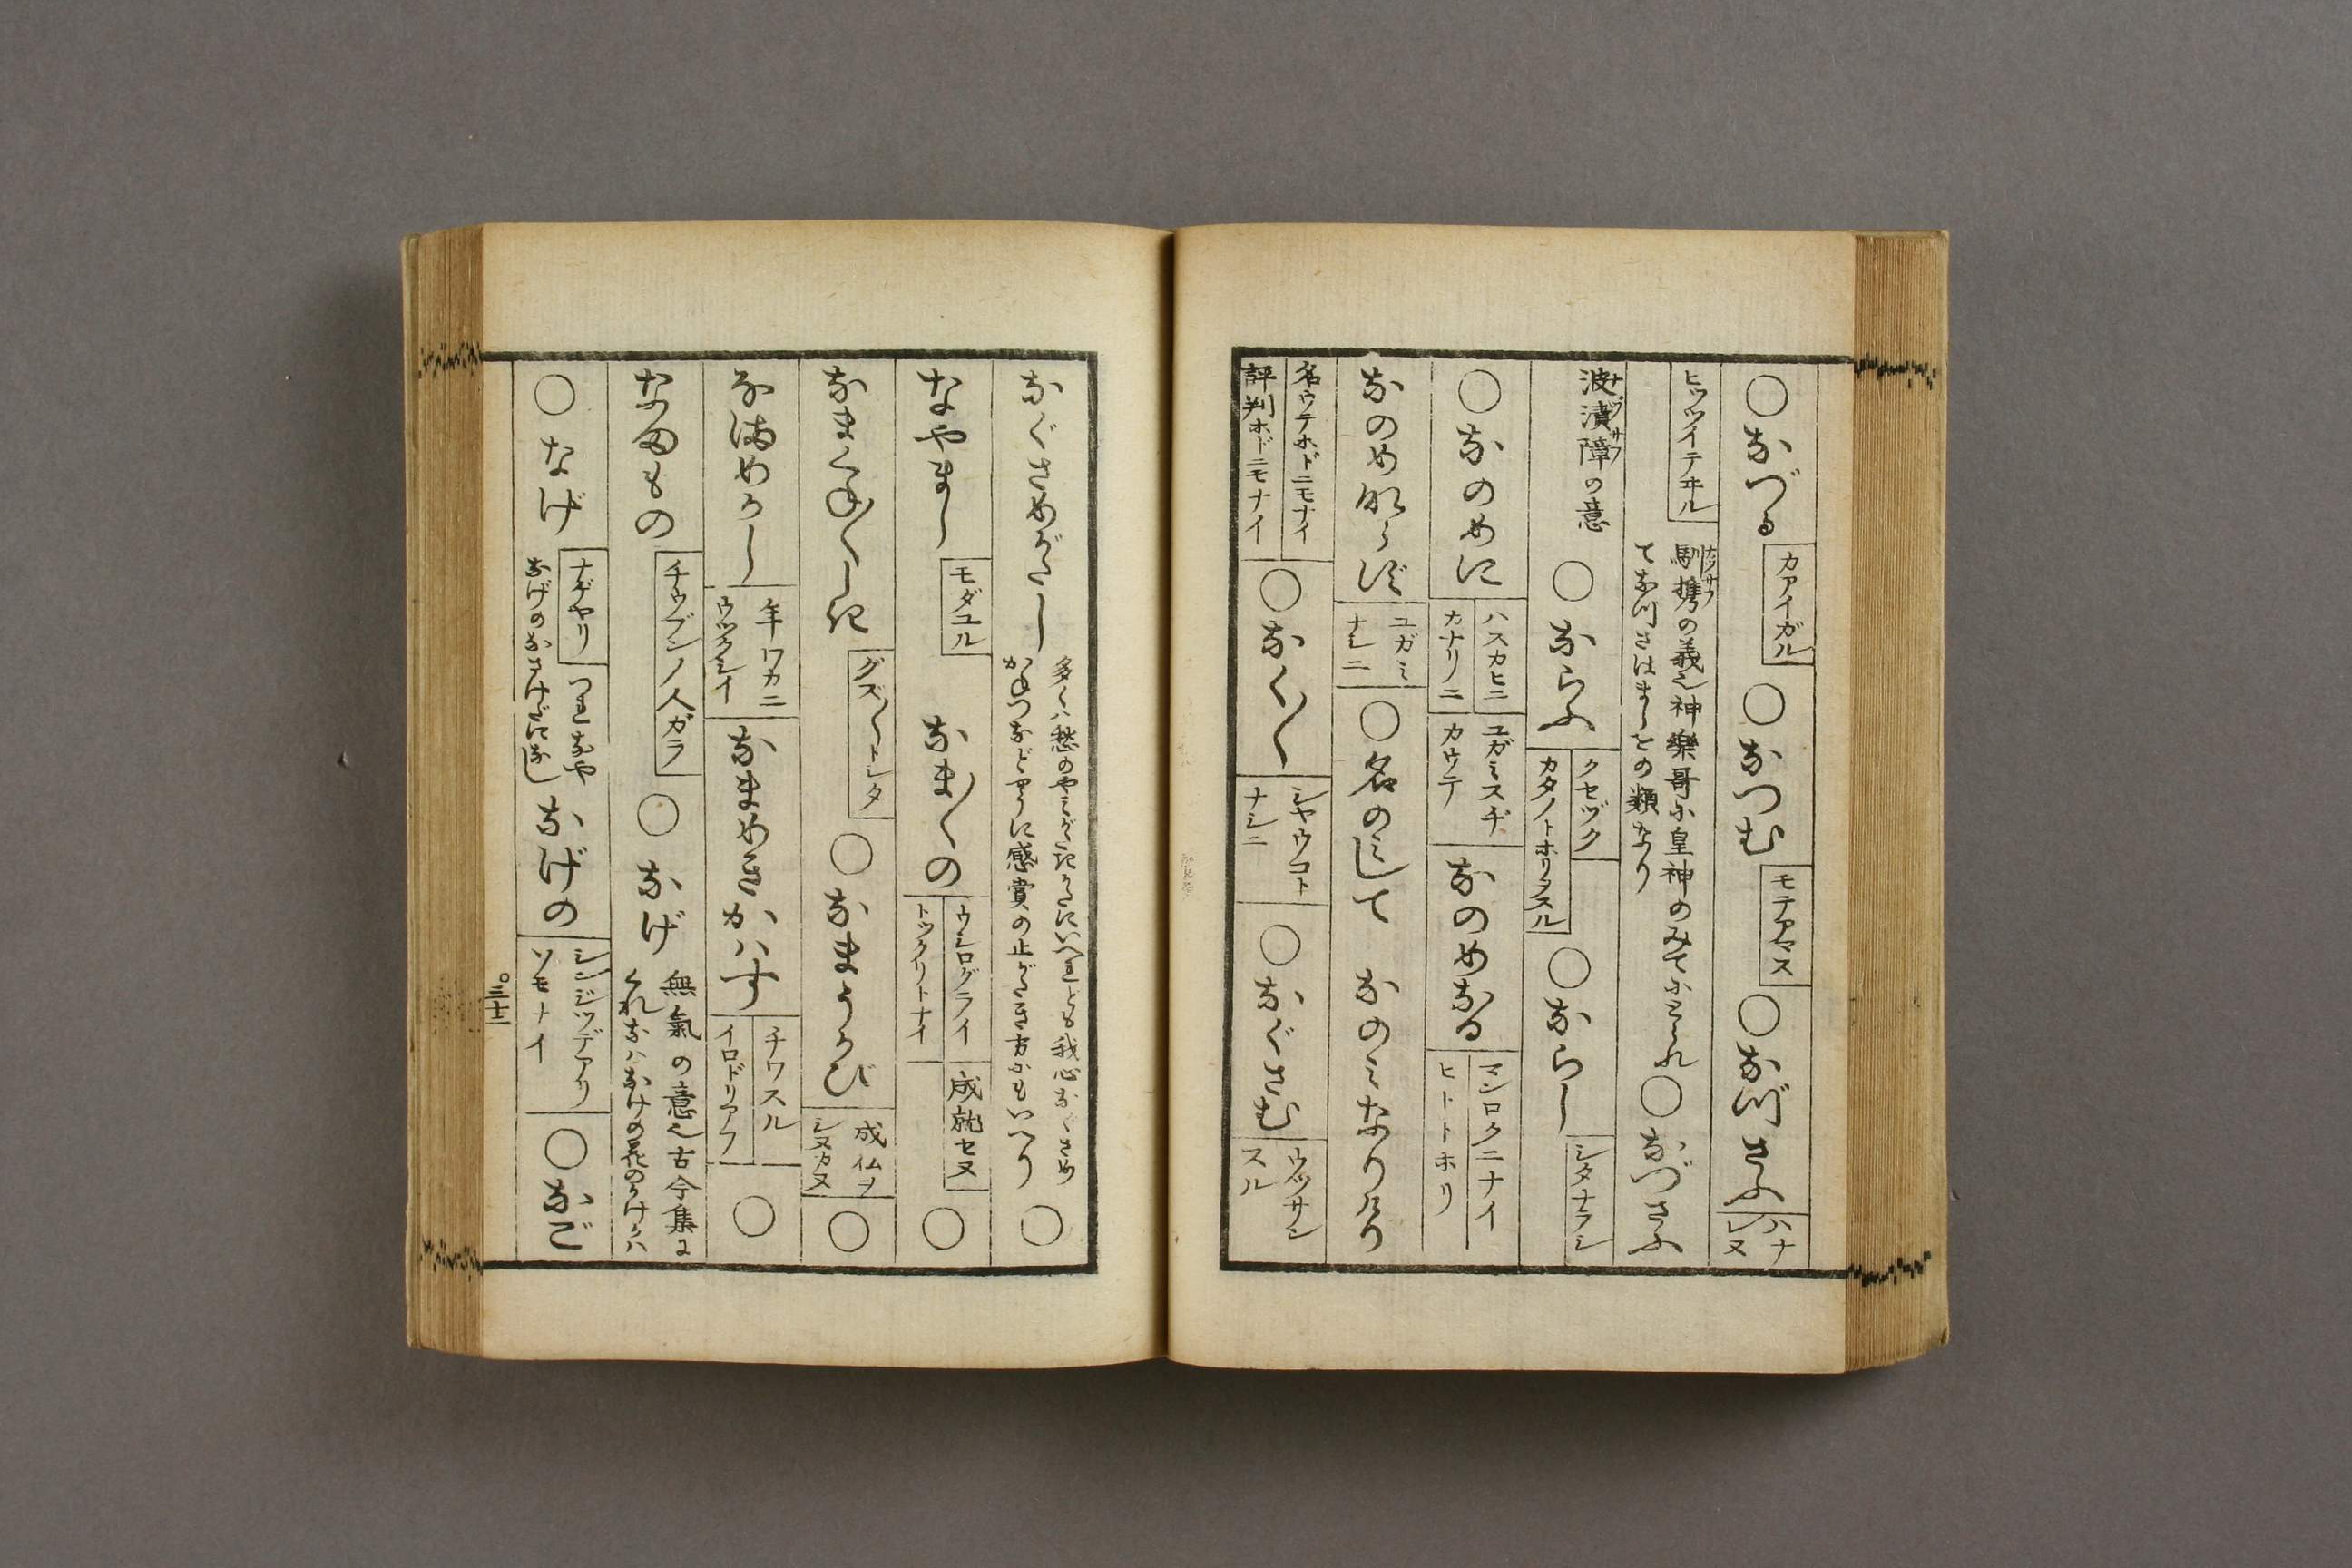 ○なづる カアイガル ○なつむ モテアマス ○なづさふ ハナレヌ
ヒツツイテヰル 馴携の義也神樂哥に皇神のみてになれ
てなづさはましをの類なり ○なづさふ
波漬障の意 ○ならふ クセヅク カタノトホリヲスル ○ならし シタナラシ
○なのめに ハスカヒニ カナリニ ユガミスヂカウテ なのめなる マンロクニナイ ヒトトホリ
なのめならず ユガミナシニ ○名のみして なのみなりけり
名ウテホドニモナイ 評判ホドニモナイ ○なく〱 シヤウコトナシニ ○なぐさむ ウツサンスル ○
なぐさめがたし 多くハ愁のやみがたきかたにいへれども我心なぐさめ
かねつなどやうに感賞の止がたき方にもいへり ○
なやまし モダユル なま〱の ウシログライ トツクリトナイ 成就セヌ ○
なまくね〱しき グズ〱トシタ ○なまうかび 成仏ヲシヌカヌ ○
なまめかし 年ワカニウツクシイ なまめきかハす チワスル イロドリアフ ○
なまもの チウブンノ人ガラ ○なげ 無氣の意也古今集に
くれなバなげの花のかげかハ
○なげ ナゲヤリ つれなや なげのなさけだになし なげの シンジツデアリソモナイ ○なご
三十二